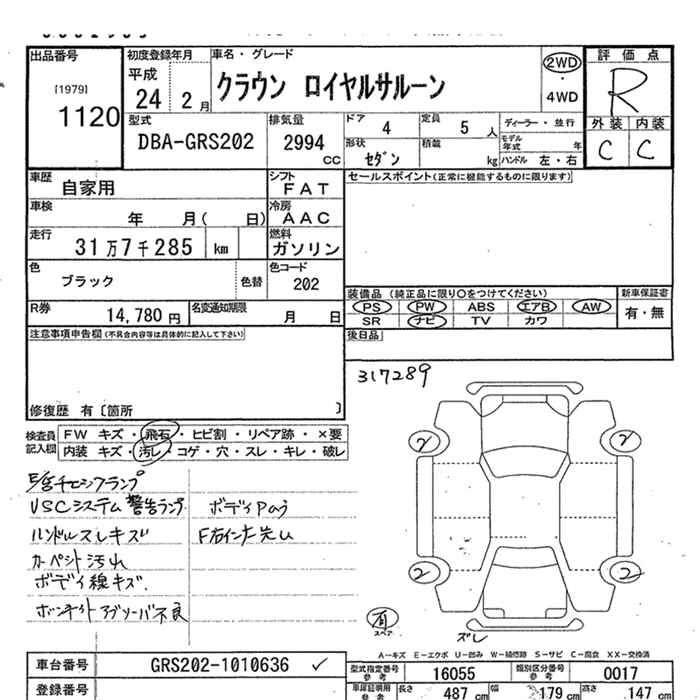 出品番号 初度登録年月 車名・グレード 評価点
[1979] 平成 クラウン ロイヤルサルーン 2WD R
1120 24 2月 ・4WD
型式 排気量 ドア 4 定員 5 人 ディーラー・並行 外装 内装
DBA-GRS202 2994 cc 形状 セダン 積載 kg モデル年式 年 C C
ハンドル 左・右
車歴 自家用 シフト FAT セールスポイント(正常に機能するものに限ります)
車検 年 月( 日) 冷房 AAC
走行 31万7千285 km 燃料 ガソリン
色 ブラック 色替 色コード 202
装備品 (純正品に限り○をつけてください) 新車保証書
R券 14,780円 名変通知期限 月 日 PS PW ABS エアB AW 有・無
SR ナビ TV カワ
注意事項申告欄(不具合内容等は具体的に記入して下さい) 後日品
317289
修復歴 有〔箇所 〕
検査員記入欄 FW キズ・飛石・ヒビ割・リペア跡・×要
内装 キズ・汚レ・コゲ・穴・スレ・キレ・破レ
VSCシステム警告ランプ
ハンドルスレキズ
カーペット汚れ
ボディ線キズ.
2 2
2 2
有
スペア
ズレ
A－キズ E－エクボ U－凹み W－補修跡 S－サビ C－腐食 XX－交換済
車台番号 GRS202-1010636 ✓ 型式指定番号 参考 16055 類別区分番号 参考 0017
登録番号 車庫証明用 参考 長さ 487 cm 幅 179 cm 高さ 147 cm